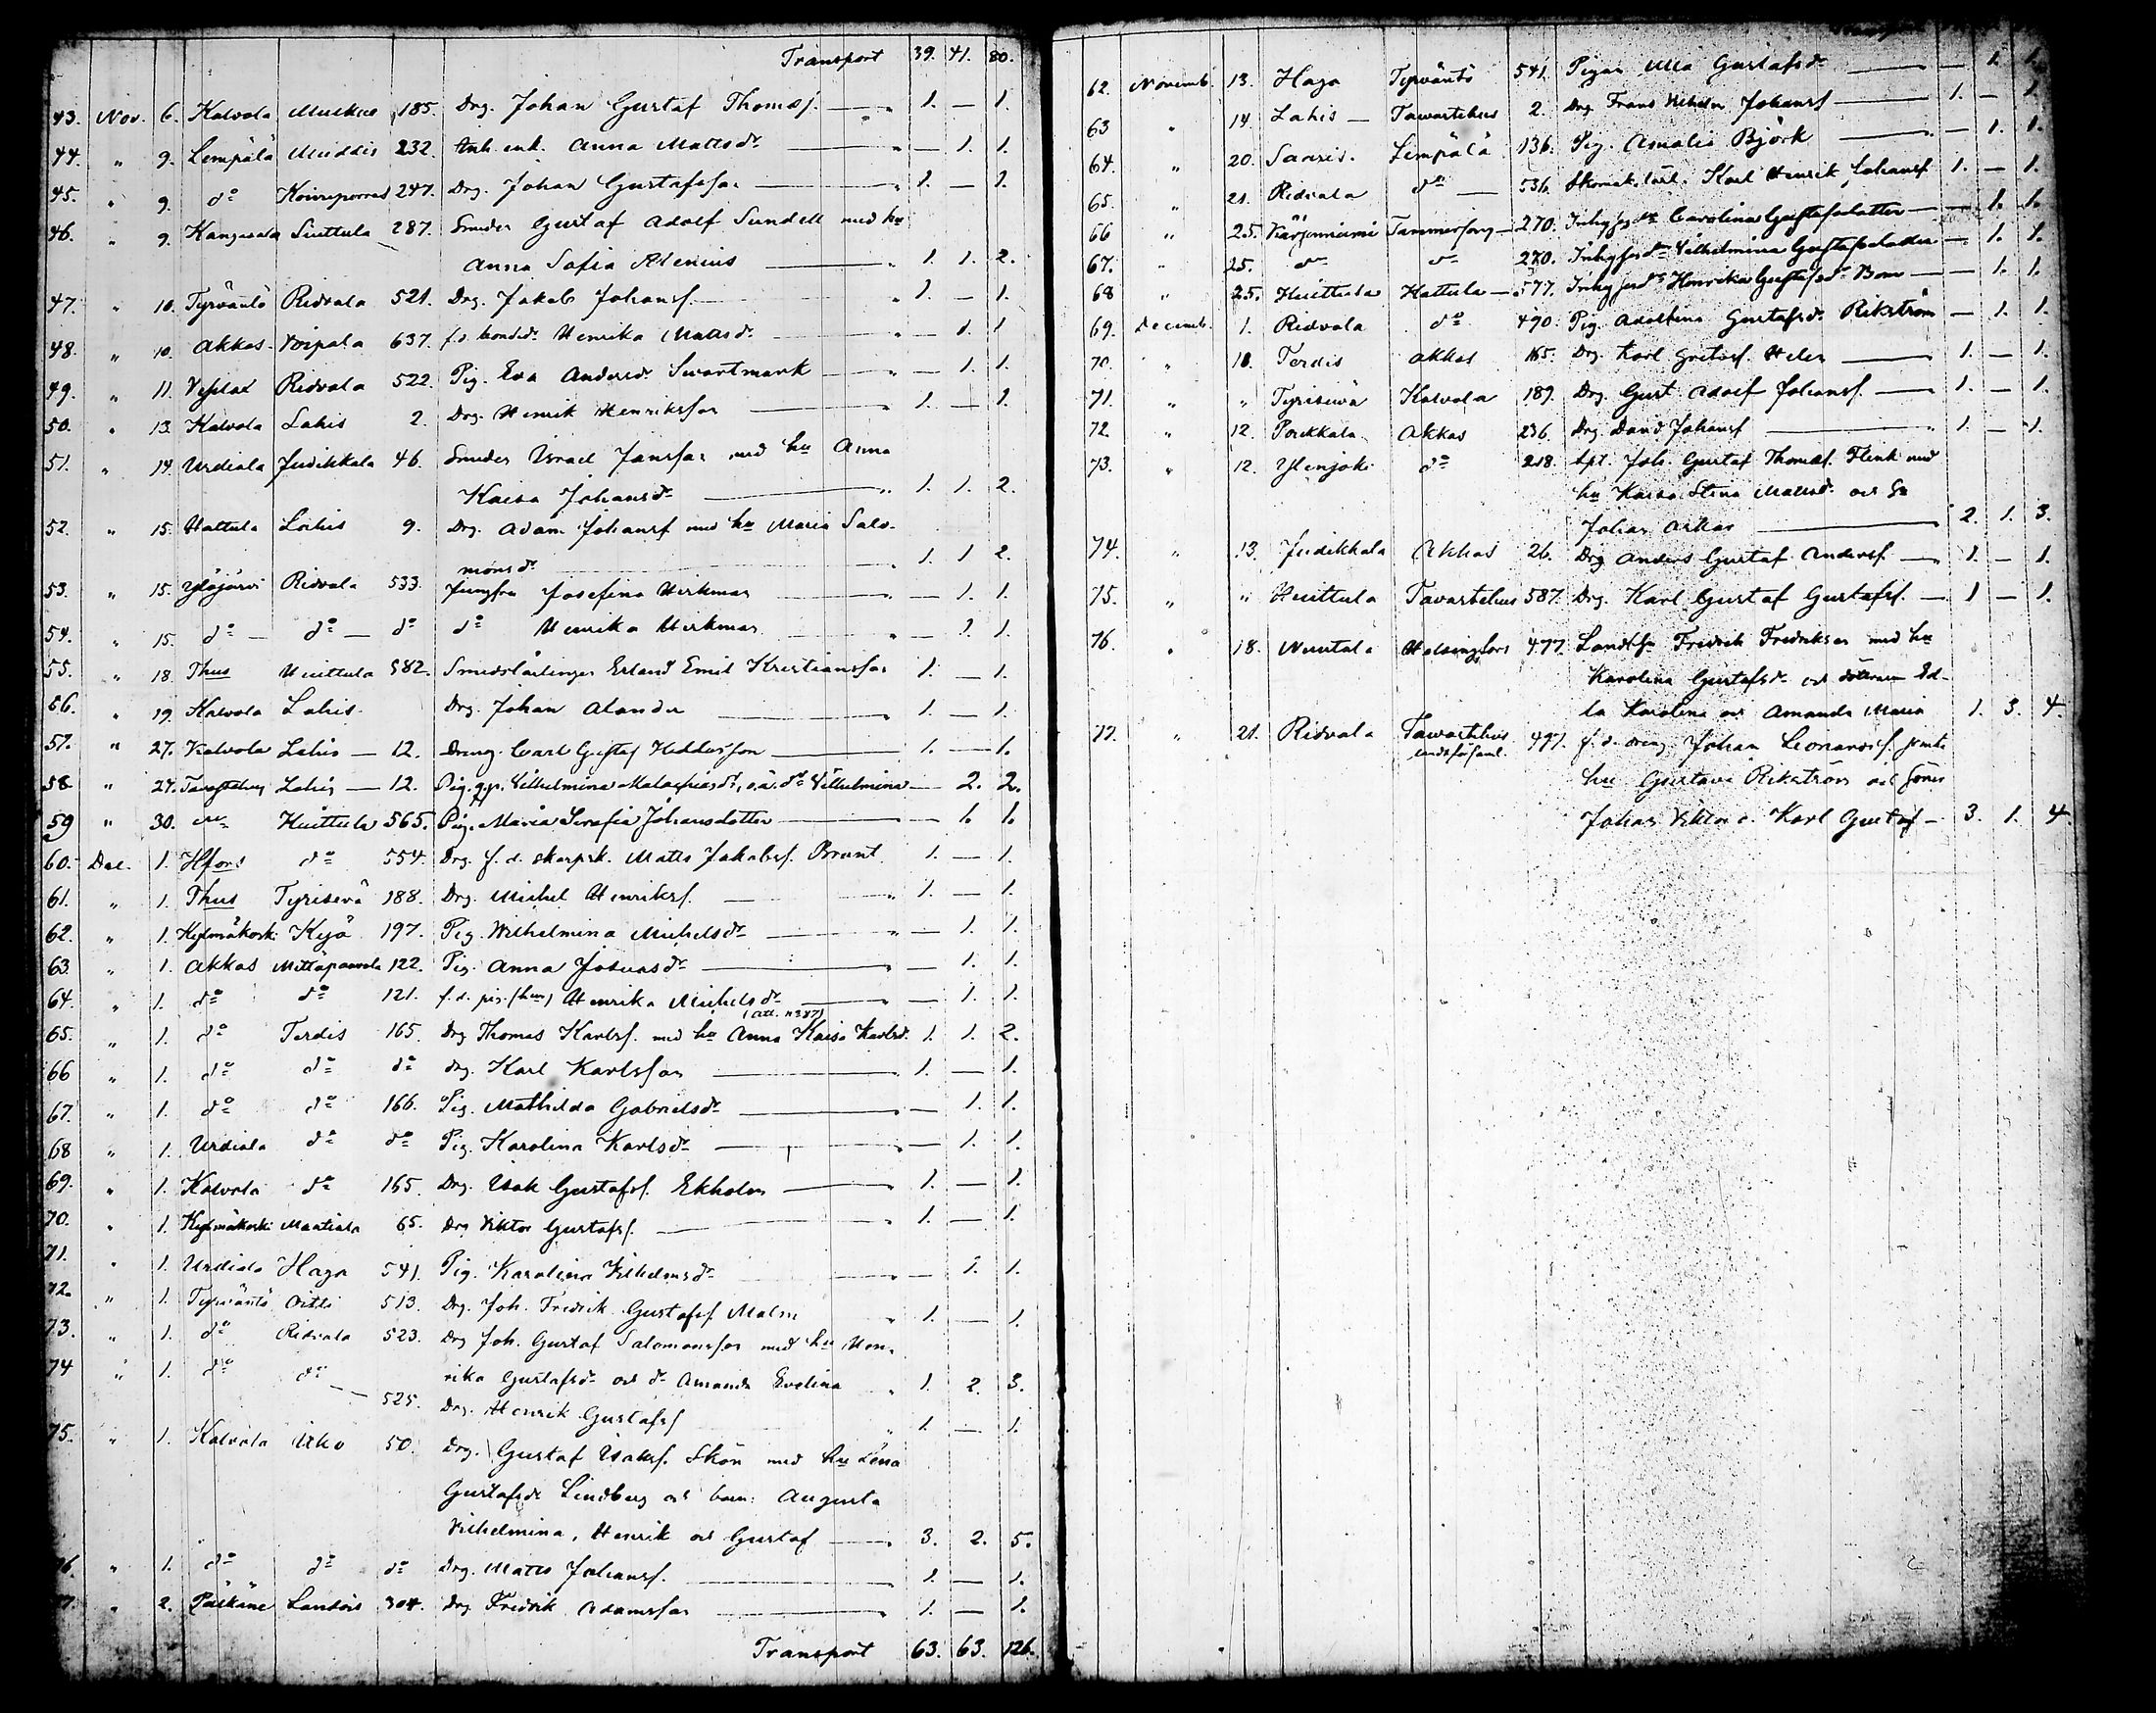 Transport 39. 41. 80.
43. Nov. 6. Kalvola 185. Drg. Johan Gustaf Thomasf. 1. — 1.
44. " 9. Lempälä 232. Inh. enk. Anna Mattsdr — 1. 1.
45. " 9. do 247. Drg. Johan Gustafsson 1. — 1.
46. " 9. Kangasala Suttula 287. Smeden Gustaf Adolf Sundell med hu
Anna Sofia Alenius 1. 1. 2.
47. " 10. Tyrväntö Ridvala 521. Drg. Jakob Johansf. 1. — 1.
48. " 10. Akkas Voipala 637. f.d. bondedr Henrika Mattsdr — 1. 1
49. " 11. Ridvala 522. Pig. Eva Andersdr Svartmark — 1. 1.
50. " 13. Kalvola Lahis 2. Drg. Henrik Henriksson 1. — 1.
51. " 14. Urdiala Judikkala 46. Smeden Israel Jansson med hu Anna
Kaisa Johansdr 1. 1. 2.
52. " 15. Hattula Lahis 9. Drg. Adam Johansf med hu Maria Salo-
monsdr 1. 1 2.
53. " 15. Ylöjärvi Ridvala 533. Jungfru Josefina Hirkman — 1. 1.
54. " 15. do — do — do do Henrika Hirkman — 1. 1.
55. " 18. Thus Huittula 582. Smedslärlingen Erland Emil Kristiansson 1. — 1.
56. " 19. Kalvola Lahis Drg. Johan Alander 1. — 1.
57. " 27. Kalvola Lahis — 12. Dreng Carl Gustaf 1. — 1.
58 " 27. Tavastehus Lahis — 12. Pig. Vilhelmina Malachiasdr, o.ä. dr Vilhelmina — 2. 2.
59 " 30. do Huittula 565. Pig. Maria Serafia Johansdotter — 1. 1.
60. Dec. 1. Hfors do 554. Drg. f.d. skarpsk. Matts Jakobsf. Brunt 1. — 1.
61. " 1. Thus Tyrisevä 188. Drg. Michel Henriksf. 1. — 1.
62. " 1. Kylmäkoski Kyjö 197. Pig. Wilhelmina Michelsdr — 1. 1.
63. " 1. Akkas Mittäpaavola 122. Pig. Anna Josuasdr — 1. 1.
64. " 1. do do 121. f.d. pig. (hu) Henrika Michelsdr — 1. 1.
(att. n:387)
65. " 1. do Terdis 165. Drg Thomas Karlsf. med hu Anna Kaisa Karlsdr 1. 1. 2.
66 " 1. do do do drg. Karl Karlsson 1. — 1.
67. " 1. do do 166. Pig. Mathilda Gabrielsdr — 1. 1.
68 " 1. Urdiala do do Pig. Karolina Karlsdr — 1. 1.
69. " 1. Kalvola do 165. Drg. Isak Gustafsf. Ekholm 1. — 1.
70. " 1. Kylmäkoski Maatiala 65. Drg Viktor Gustafsf. 1. — 1.
71. " 1. Urdiala Haga 541. Pig. Karolina Vilhelmsdr — 1. 1.
72. " 1. Tyrväntö Oitti 513. Drg. Joh. Fredrik Gustafsf Malm 1. — 1.
73. " 1. do Ridvala 523. Drg Joh. Gustaf Salomonsson med hu Hen-
rika Gustafsdr och dr Amanda Evelina 1. 2. 3.
74 " 1. do do 525. Drg. Henrik Gustafsf 1. — 1.
75. " 1. Kalvola Uho 50. Drg. Gustaf Isaksf. Skön med hu Lena
Gustafsdr Lindberg och barn: Augusta
Vilhelmina, Henrik och Gustaf 3. 2. 5.
76. " 1. do do do Drg. Matts Johansf. 1. — 1.
77. " 2. Pälkäne Lontois 304. Drg Fredrik Adamsson 1. — 1.
Transport 63. 63. 126.
62. Novemb. 13. Haga Tyrväntö 541. Pigan Ulla Gustafsdr — 1. 1.
63 " 14. Lahis — Tavastehus 2. Drg Frans Vilhelm Johansf 1. — 1.
64. " 20. Saaris Lempälä 136. Pig. Amalia Björk — 1. 1.
65. " 21. Ridvala do — 536. Skomak.lärl. Karl Henrik Johansf 1. — 1.
66 " 25. Kärjenniemi Tammerfors — 270. Inhysesdr Carolina Gustafsdotter — 1. 1.
67. " 25. do do 270. Inhysesdr Vilhelmina Gustafsdotter — 1. 1.
68 " 25. Huittula Hattula — 577. Inhysesdr Henrika Gustafsdr Bom — 1. 1.
69. Decemb. 1. Ridvala do 490. Pig. Adolfina Gustafsdr Rikström — 1. 1.
70. " 10. Terdis Akkas 165. Drg. Karl Gustafsf. Helen 1. — 1.
71. " " Tyrisevä Kalvola 189. Drg. Gust. Adolf Johansf. 1. — 1.
72. " 12. Porkkala Akkas 236. Drg. David Johansf 1. — 1.
73. " 12. Ylenjoki do 218. Joh. Gustaf Thomasf. Flink med
hu Kaisa Stina Mattsdr och son
Johan Oskar 2. 1. 3.
74. " 13. Judikkala Akkas 26. Drg Anders Gustaf Andersf. 1. — 1.
75. " " Huittula Tavastehus 587. Drg. Karl Gustaf Gustafsf. 1 — 1.
76. " 18. Nuutala Helsingfors 477. Fredrik Fredriksson med hu
Karolina Gustafsdr och döttrarne Ed-
la Karolina och Amanda Maria 1. 3. 4.
77. " 21. Ridvala Tavastehus 497. f.d. dreng. Johan Leonardsf. jemte
landsförsaml.
hu Gustava Rikström och söner
Johan Viktor o. Karl Gustaf — 3. 1. 4.